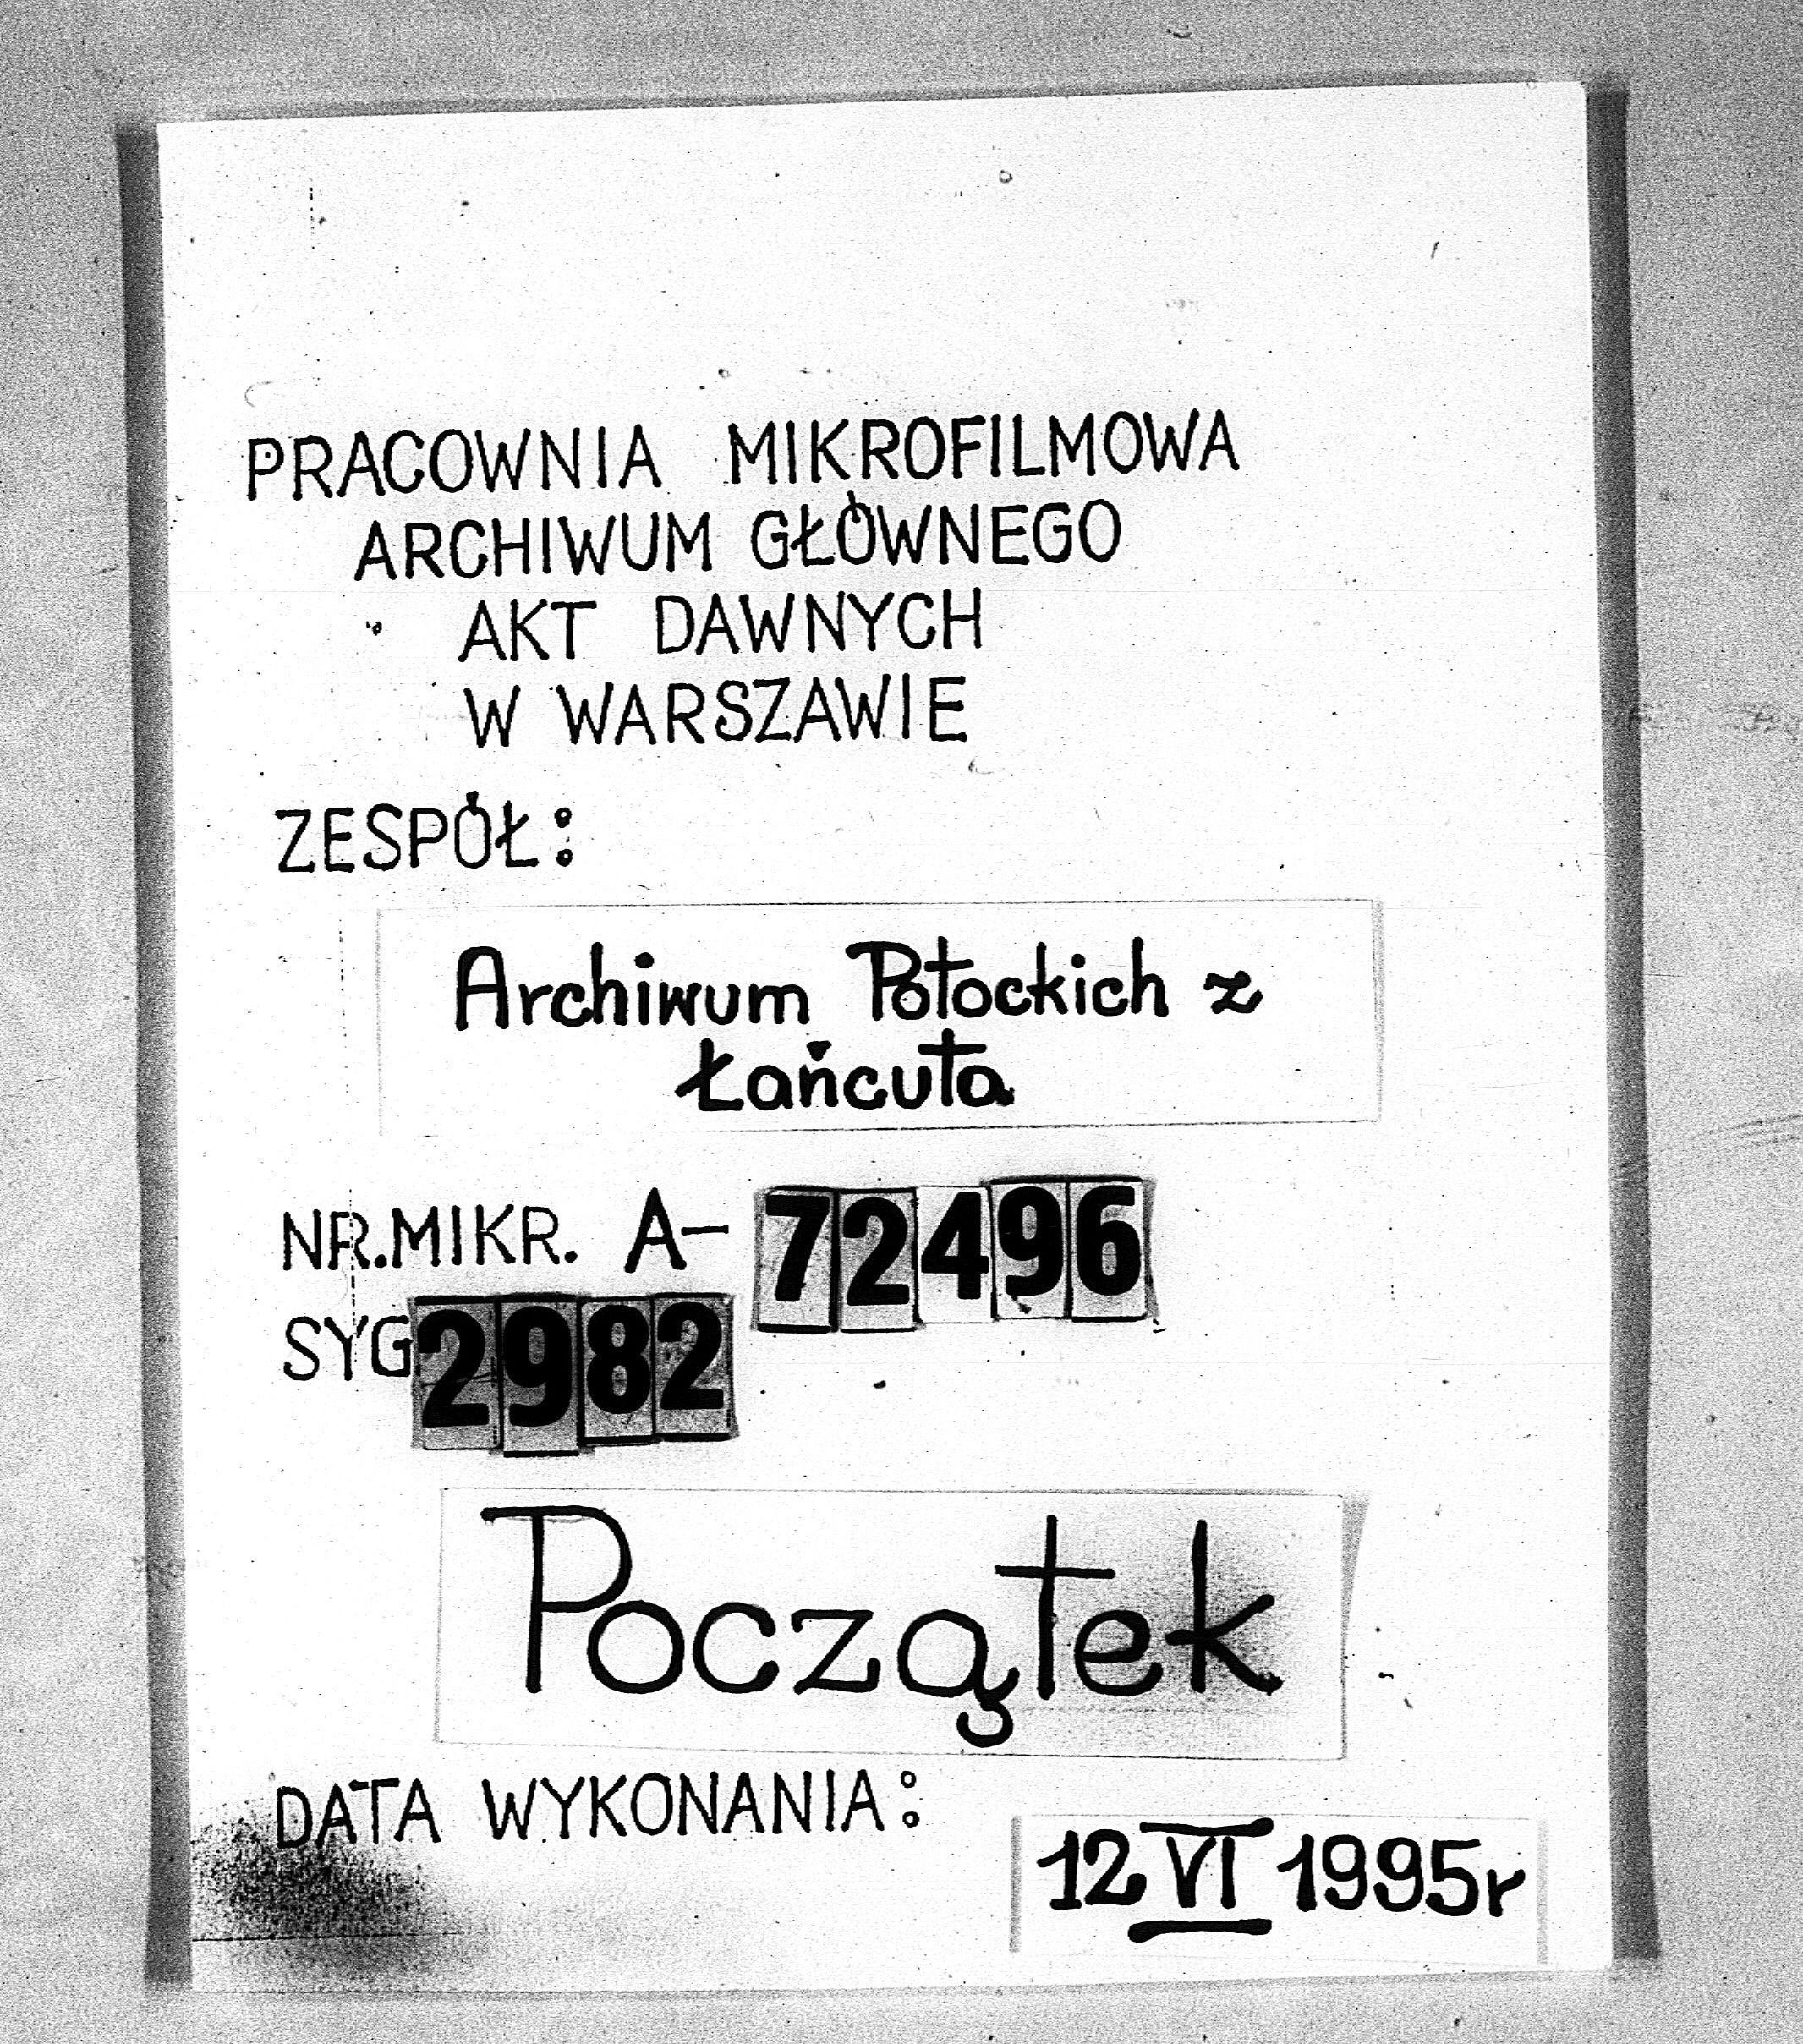 PRACOWNIA MIKROFILMOWA
ARCHIWUM GŁÓWNEGO
AKT DAWNYCH
W WARSZAWIE
ZESPÓŁ:
Archiwum Potockich z
Łańcuta
NR.MIKR. A- 72496
SYG 2982
Początek
DATA WYKONANIA:
12 VI 1995r